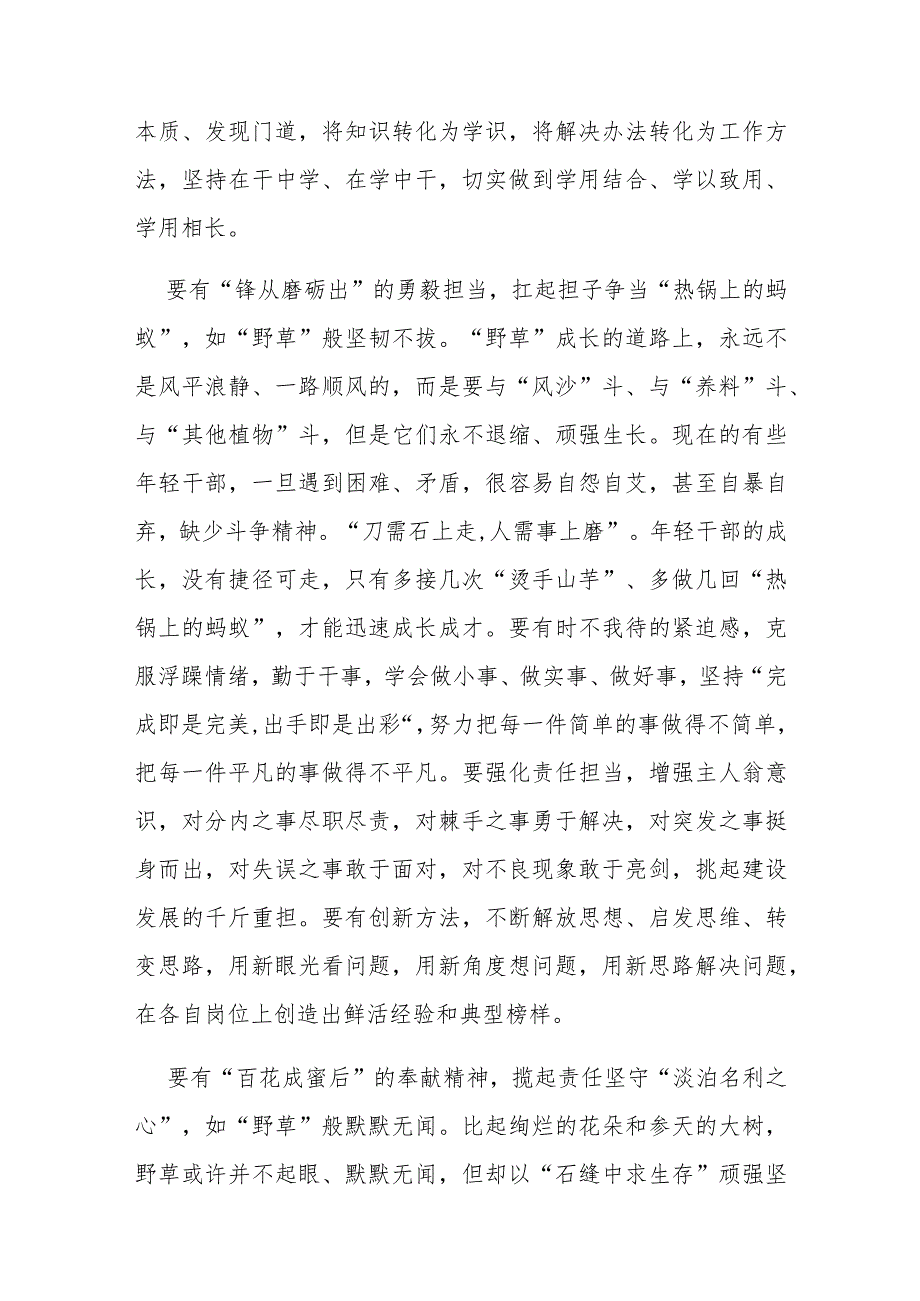 本质、发现门道，将知识转化为学识，将解决办法转化为工作方
法，坚持在干中学、在学中干，切实做到学用结合、学以致用、
学用相长。
要有“锋从磨砺出”的勇毅担当，扛起担子争当“热锅上的蚂
蚁”，如“野草”般坚韧不拔。“野草”成长的道路上，永远不
是风平浪静、一路顺风的，而是要与“风沙”斗、与“养料”斗、
与“其他植物”斗，但是它们永不退缩、顽强生长。现在的有些
年轻干部，一旦遇到困难、矛盾，很容易自怨自艾，甚至自暴自
弃，缺少斗争精神。“刀需石上走,人需事上磨”。年轻干部的成
长，没有捷径可走，只有多接几次“烫手山芋”、多做几回“热
锅上的蚂蚁”，才能迅速成长成才。要有时不我待的紧迫感，克
服浮躁情绪，勤于干事，学会做小事、做实事、做好事，坚持“完
成即是完美,出手即是出彩“，努力把每一件简单的事做得不简单，
把每一件平凡的事做得不平凡。要强化责任担当，增强主人翁意
识，对分内之事尽职尽责，对棘手之事勇于解决，对突发之事挺
身而出，对失误之事敢于面对，对不良现象敢于亮剑，挑起建设
发展的千斤重担。要有创新方法，不断解放思想、启发思维、转
变思路，用新眼光看问题，用新角度想问题，用新思路解决问题，
在各自岗位上创造出鲜活经验和典型榜样。
要有“百花成蜜后”的奉献精神，揽起责任坚守“淡泊名利之
心”，如“野草”般默默无闻。比起绚烂的花朵和参天的大树，
野草或许并不起眼、默默无闻，但却以“石缝中求生存”顽强坚